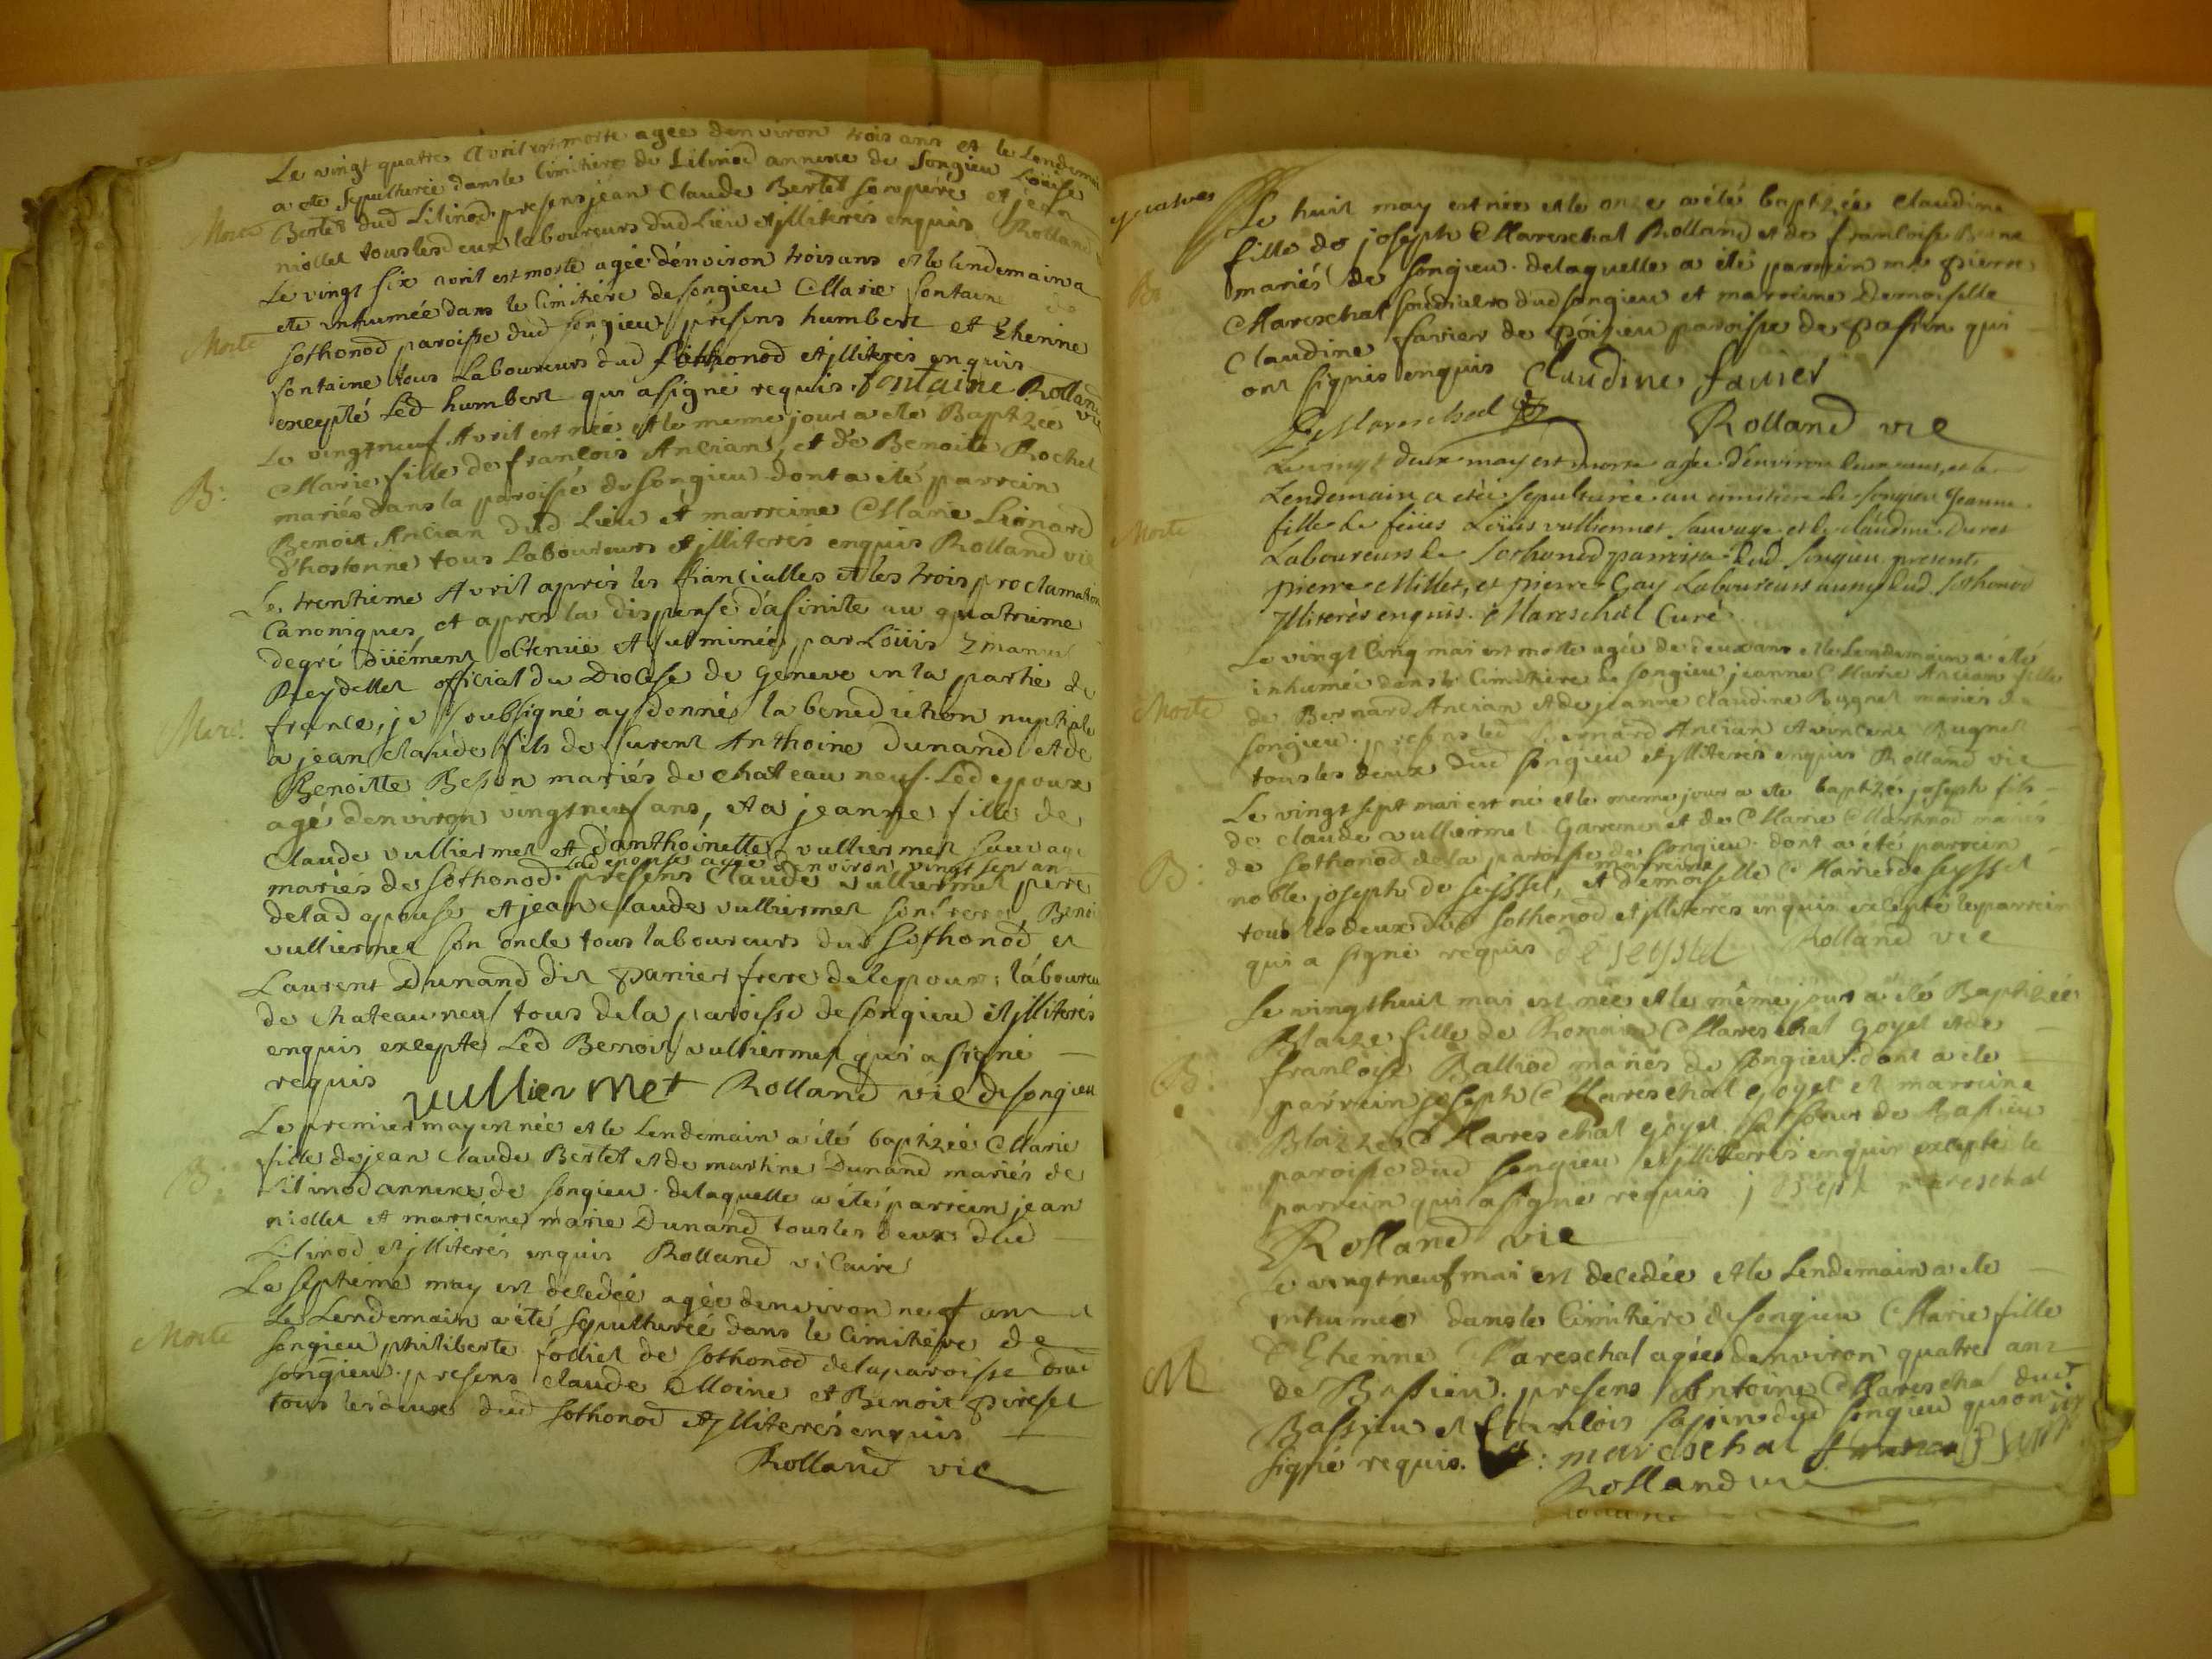 Le vingt quatre Avril est morte agée denviron trois ans et le Lendemain
a ete sepulturée dans le Cimitiere de Lilinod annexe de Songieu Loüise
Morte
Bertet dud Lilinod. presens jean Claude Bertet son pere et jean
niollet tous les deux laboureurs dud Lieu et jlliterés enquis Rolland
Le vingt six avril est morte agée dénviron trois ans et le lendemain a
ete inhumée dans le Cimitiére de songieu Marie fontaine de
Morte
sothonod paroisse dud songieu présens humbert et Etienne
fontaine tous Laboureurs dud sothonod et jlliterés enquis
excepté Led humbert qui a signé requis fontaine Rolland vic
Le vingtneuf Avril est née et le meme jour a ete Baptzée
B:
Marie fille de francois Ancian, et de Benoite Rochet
mariés dans la paroisse de songieu dont a été parrein
Benoit Ancian dud Lieu et marreine Marie Lionard
d'hostonne tous Laboureurs et jlliterés enquis Rolland vic
Le trentieme Avril aprés les fiancialles et les trois proclamations
Canoniques, et apres la dispense d'afinite au quatrieme
degré düément obtenüe et fulminée, par Loüis Emanuel
Reydellet official du Diocese de Geneve en la partie de
Mari:
france, je soubsigné ay donné la benediction nuptiale
a jean claude fils de Lurent Anthoine Dunand et de
Benoitte Besson mariés de chateau neuf. Led epoux
agé denviron vingtneuf ans, et a jeanne fille de
Claude vulliermet et d'anthoinette vulliermet sauvage
Lad epouse agée denviron vingt sept ans
mariés de sothonod. presens Claude vulliermet pere
delad epouse et jean claude vulliermet son frere, Benoi
vulliermet son oncle tous laboureurs dud Sothonod et
Laurent Dunand dit panier frere delepoux; láboureu
de chateauneuf tous dela paroisse de songieu et jlliterés
enquis excepte Led Benoit vulliermet qui a signé
requis vulliermet Rolland vic de songieu
Le premier may est née et le Lendemain a été baptizée Marie
B:
fille de jean claude Bertet et de martine Dunand mariés de
Lilinod annexe de songieu. delaquelle a été parrein jean
niollet et marreine marie Dunand tous les deux dud
Lilinod et jlliterés enquis Rolland vicaire
Le septieme may est decedée agée denviron neuf ans et
Morte
Le Lendemain a été sepulturée dans le Cimitiére de
songieu philiberte folliet de sothonod dela paroisse dud
songieu. presens claude Moine et Benoit pireset
tous les deux dud sothonod et jlliterés enquis
Rolland vic
Le huit may est née et le onze a été baptzée claudine
fille de joseph Mareschal Rolland et de francoise
B:
mariés de songieu. delaquelle a été parrein me pierre
Mareschal dud songieu et marreine Demoiselle
Claudine favier de poizieu paroisse de passin qui
ont signés enquis Claudine favier
Mareschal
Rolland vic
Le vingt deux may est morte agée d'environ deux ans, et le
Lendemain a été sepulturée au cimitiere de songieu Jeanne
Morte
fille de feüs Loüis vulliermet sauvage et de claudine
Laboureurs de sothonod paroisse dud songieu present
pierre Millet, et pierre Gay Laboureurs aussy dud sothonod
jlliterés enquis. Mareschal Curé
Le vingt Cinq mai est morte agée de deux ans et le Lendemain a été
inhumée dans le Cimitiere de songieu jeanne Marie Ancian fille
Morte
de Bernard Ancian et de jeanne claudine Bugnet mariés de
songieu. presens led Bernard Ancian et vincent Bugnet
tous les deux dud songieu et jlliterés enquis Rolland vic
Le vingt sept mai est né et le meme jour a ete baptzé joseph fils
de claude vulliermet et de Marie Martinod mariés
B:
de sothonod dela paroisse de songieu. dont a été parrein
noble joseph de seyssel, et marreine demoiselle Marie de seyssel
tous les deux dud sothonod et jlliterés enquis excepté le parrein
qui a signé requis de seyssel Rolland vic
Le vingthuit mai est née et le même jour a été Baptizée
Blaize fille de Romain Mareschal goyet et de
B:
francoise Balliod mariés de songieu. dont a ete
parrein joseph Mareschal goyet et marreine
Blaizze Mareschal goyet sa soeur de Bassieu
paroisse dud songieu et jlliterrés enquis excepté le
parrein qui a signe requis joseph mareschal
Rolland vic
Le vingtneuf mai est decedée et le Lendemain a ete
inhumée dans le Cimitiére de songieu Marie fille
d'Etienne Mareschal agée denviron quatre ans
M
de Bassieu. presens Antoine Mareschal dud
Bassieu et francois sapin dud songieu qui ont
signé requis. a: mareschal
Rolland vic